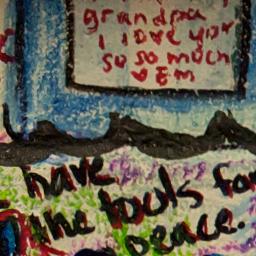 grandpa
I love you
so so much
♥ Em
have
the tools for
peace.